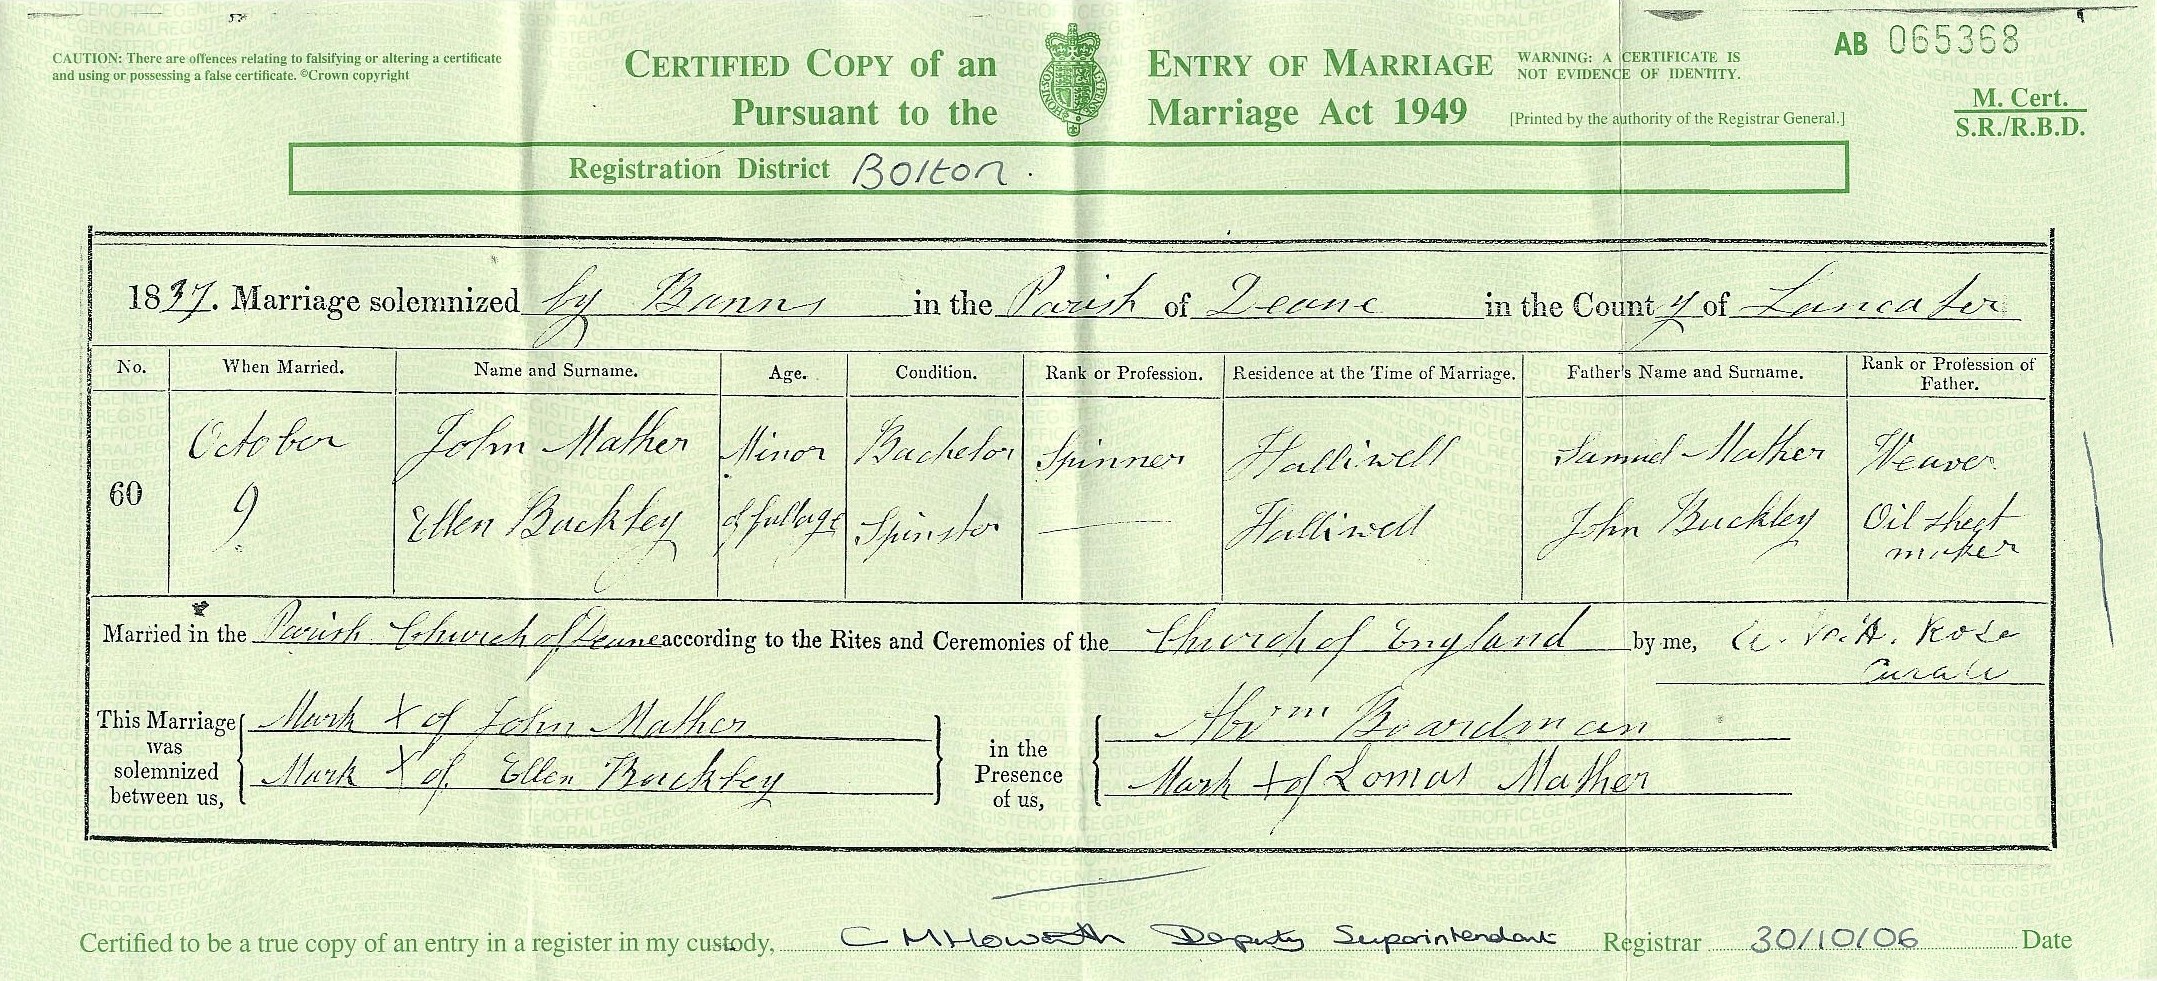 CAUTION: There are offences relating to falsifying or altering a certificate
and using or possessing a false certificate. ©Crown copyright
CERTIFIED COPY of an ENTRY OF MARRIAGE
Pursuant to the Marriage Act 1949
WARNING: A CERTIFICATE IS
NOT EVIDENCE OF IDENTITY.
[Printed by the authority of the Registrar General.]
AB 065368
M. Cert.
S.R./R.B.D.
Registration District Bolton.
1837. Marriage solemnized by Banns in the Parish of Deane in the County of Lancaster
No. When Married. Name and Surname. Age. Condition. Rank or Profession. Residence at the Time of Marriage. Father's Name and Surname. Rank or Profession of Father.
60 October John Mather Minor Bachelor Spinner Halliwell Samuel Mather Weaver
9 Ellen Buckley of full age Spinster Halliwell John Buckley Oil sheet
maker
Married in the Parish Church of Deane according to the Rites and Ceremonies of the Church of England by me, H. Rose
Curate
This Marriage was solemnized between us,
Mark X of John Mather
Mark X of Ellen Buckley
in the Presence of us,
Abrm Boardman
Mark X of Lomas Mather
Certified to be a true copy of an entry in a register in my custody, C M Howorth Deputy Superintendent Registrar 30/10/06 Date